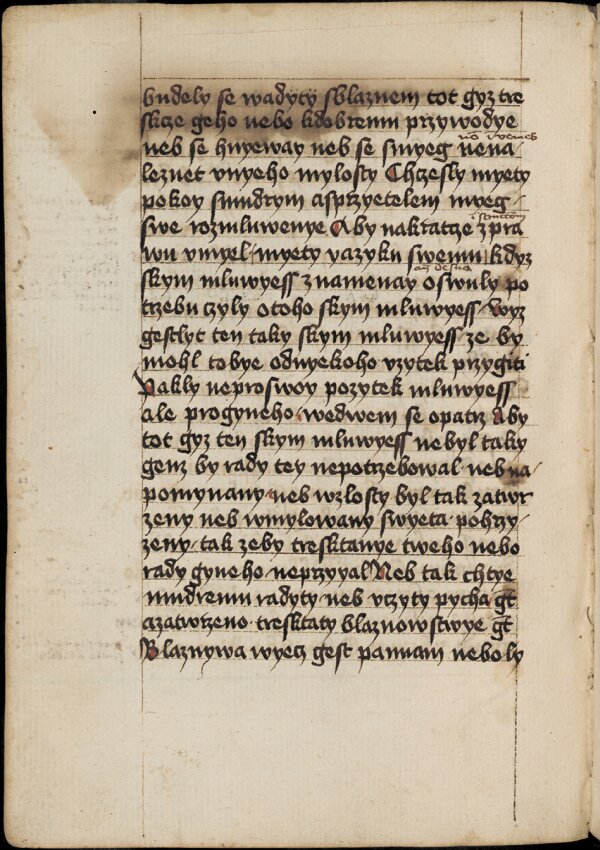 budely se wadyty sblaznem tot gyz tre
skcze geho nebo kdobremu przywodye
neb se hnyeway neb se smyeg nena
leznet vnyeho mylosty Chczesly myety
pokoy smudrym asprzyetelem myeg
swe rozmluwenye Aby naktatze zpra
wu vmyel myety yazyku swemu kdyz
skym mluwyess znamenay oswuly po
trzebu czyly otoho skym mluwyess wyz
gestlyt ten taky skym mluwyess ze by
mohl tobye odnyekoho vzytek przygiti
Pakly neproswoy pozytek mluwyess
ale progyneho wedwem se opatrz Aby
tot gyz ten skym mluwyess nebyl taky
genz by rady tey nepotrzebowal neb na
pomynany neb wzlosty byl tak zatwr
zeny neb wmylowany swyeta pohrzy
zeny tak zeby tresktanye tweho nebo
rady gyneho neprzyyal Neb tak chtye
mudremu radyty neb vczyty pycha gt
azatwrzeno tresktaty blaznowstwye gt
Blaznywa wyecz gest pannam neboly